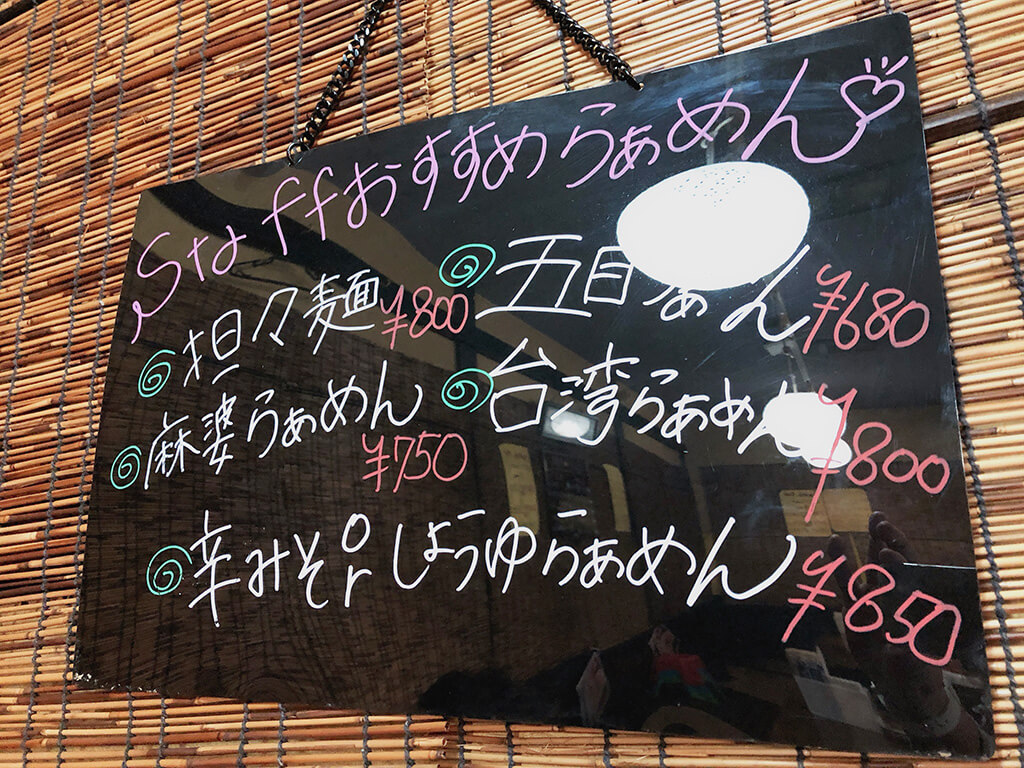 Staffおすすめらぁめん♡
坦々麺 ¥800
五目らぁめん ¥680
麻婆らぁめん ¥750
台湾らぁめん ¥800
辛みそor しょうゆらぁめん ¥850